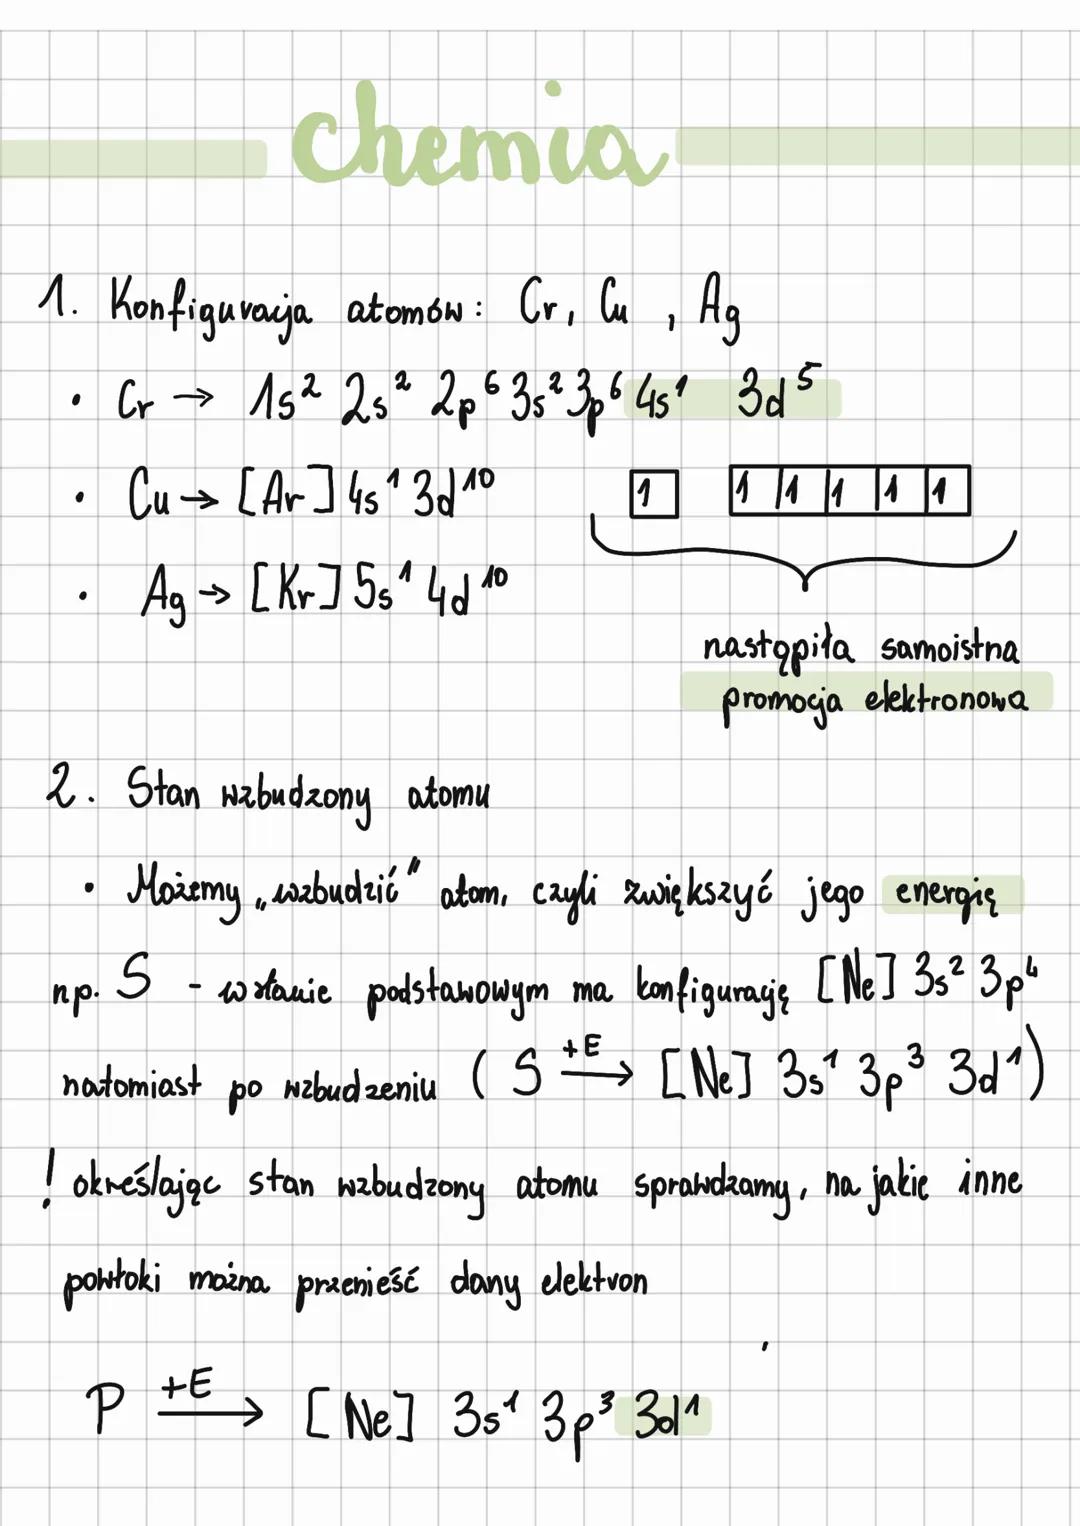 chemia
1. Konfiguracja atomów: Cr, Cu, Ag
• Cr → 1s² 2s² 2p⁶ 3s² 3p⁶ 4s¹ 3d⁵
• Cu → [Ar] 4s¹ 3d¹⁰
1 1 1 1 1 1
• Ag → [Kr] 5s¹ 4d¹⁰
nastąpiła samoistna
promocja elektronowa
2. Stan wzbudzony atomu
• Możemy „wzbudzić" atom, czyli zwiększyć jego energię
np. S - w stanie podstawowym ma konfigurację [Ne] 3s² 3p⁴
natomiast po wzbudzeniu ( S +E → [Ne] 3s¹ 3p³ 3d¹)
! określając stan wzbudzony atomu sprawdzamy, na jakie inne
powłoki można przenieść dany elektron
P +E → [Ne] 3s¹ 3p³ 3d¹